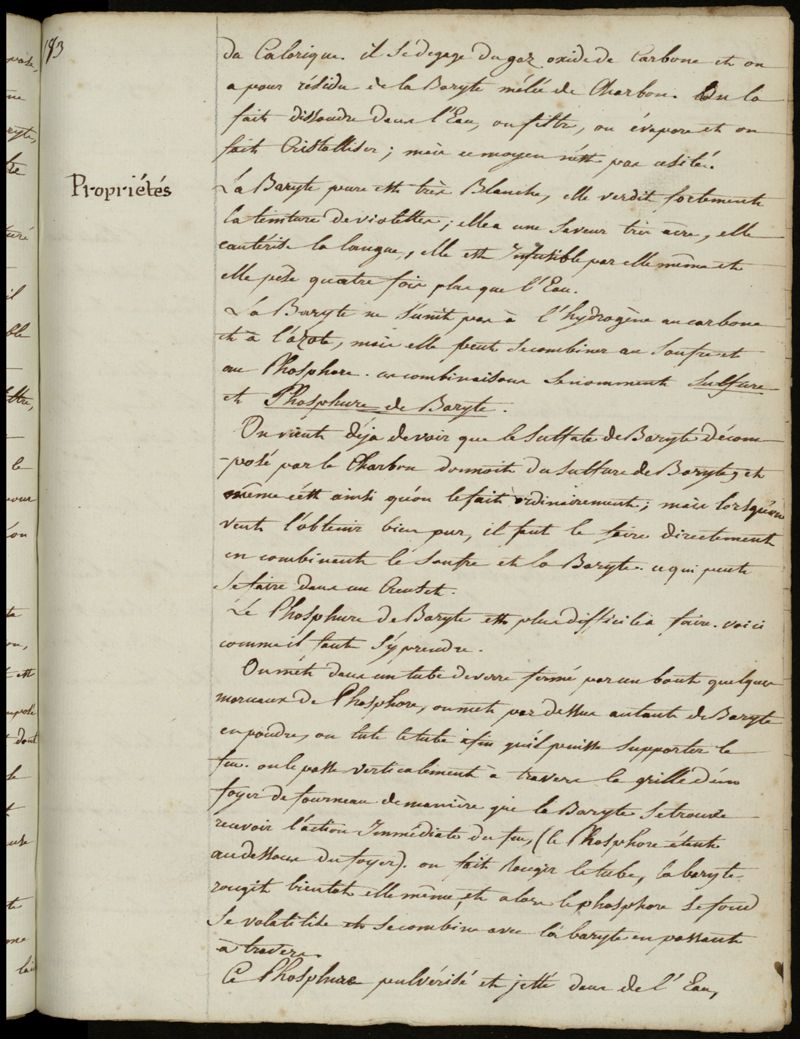 193
du Calorique. il se dégage du gaz oxide de Carbone et on
a pour résidu de la Baryte mélée de Charbon. On la
fait dissoudre dans l'Eau, on filtre, on évapore et on
fait Cristalliser; mais ce moyen n'est pas usité.
Propriétés
La Baryte pure est très Blanche, elle verdit fortement
la teinture de violettes; elle a une saveur très acre, elle
cautérise la langue, elle est Infusible par elle même et
elle pèse quatre fois plus que l'Eau.
La Baryte ne s'unit pas à l'hydrogène au carbone
et à l'azote, mais elle peut se combiner au soufre et
au Phosphore. ces combinaisons se nomment Sulfure
et Phosphure de Baryte.
On vient déja de voir que le Sulfate de Baryte décom-
-posé par le Charbon donnoit du Sulfure de Baryte, et
même c'est ainsi qu'on le fait ordinairement; mais lorsqu'on
veut l'obtenir bien pur, il faut le faire directement
en combinant le Soufre et la Baryte. ce qui peut
se faire dans un Creuset.
Le Phosphure de Baryte est plus difficile à faire. voici
comme il faut s'y prendre.
On met dans un tube de verre fermé par un bout quelques
morceaux de Phosphore, on met par dessus autant de Baryte
en poudre, on lute le tube afin qu'il puisse supporter le
feu. on le passe verticalement à travers la grille d'un
foyer de fourneau de manière que la Baryte se trouve
recevoir l'action Immédiate du feu, (le Phosphore étant
au dessous du foyer). on fait Rougir le tube, la baryte
rougit bientot elle même, et alors le phosphore se fond
se volatilise et se combine avec la baryte en passant
à travers.
Ce Phosphure pulvérisé et jetté dans de l'Eau,